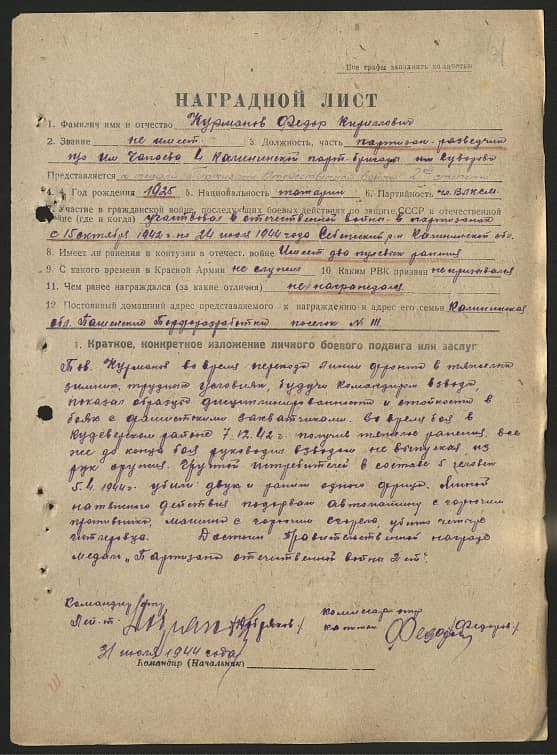 Все графы заполнять полностью
НАГРАДНОЙ ЛИСТ
1. Фамилия имя и отчество Курманов Федор Кириллович
2. Звание не имеет 3. Должность, часть партизан-разведчик
п/о им Чапаева 2 Калининской парт-бригады им Суворова
Представляется к медали Партизану Отечественной войны 2ой степени
4. Год рождения 1925 5. Национальность татарин 6. Партийность чл. ВЛКСМ.
Участие в гражданской войне, последующих боевых действиях по защите СССР и отечественной
войне (где и когда) Участвовал в отечественной войне в партизанах
с 15 октября 1942г по 24 июля 1944 года Себежский р-н Калининской обл.
8. Имеет ли ранения и контузии в отечест. войне Имеет два пулевых ранения
9. С какого времени в Красной Армии не служил 10. Каким РВК призван не призывался
11. Чем ранее награждался (за какие отличия) не награждался
12. Постоянный домашний адрес представляемого к награждению и адрес его семьи Калининская
обл. Торфоразработки поселок № III
1. Краткое, конкретное изложение личного боевого подвига или заслуг
Тов. Курманов во время перехода линии фронта в тяжелых
зимних, трудных условиях, будучи командиром взвода,
показал образцы дисциплинированности и стойкости в
боях с фашистскими захватчиками. Во время боя в
Кудеверском районе 7.12.42г. получив тяжелое ранение все
же до конца боя руководил взводом не выпуская из
рук оружия. Группой истребителей в составе 5 человек
5.4.1944г. убили двух и ранен одного фрица. Миной
натяжного действия подорвал автомашину с горючим
противника, машина с горючим сгорела, убито четыре
гитлеровца. Достоин Правительственной награды
медали „Партизана отечественной войны 2 ст."
Командир п/отр
Лей-т.
Комиссар отр
капитан /Федоров/
31 июля 1944 года
Командир (Начальник)